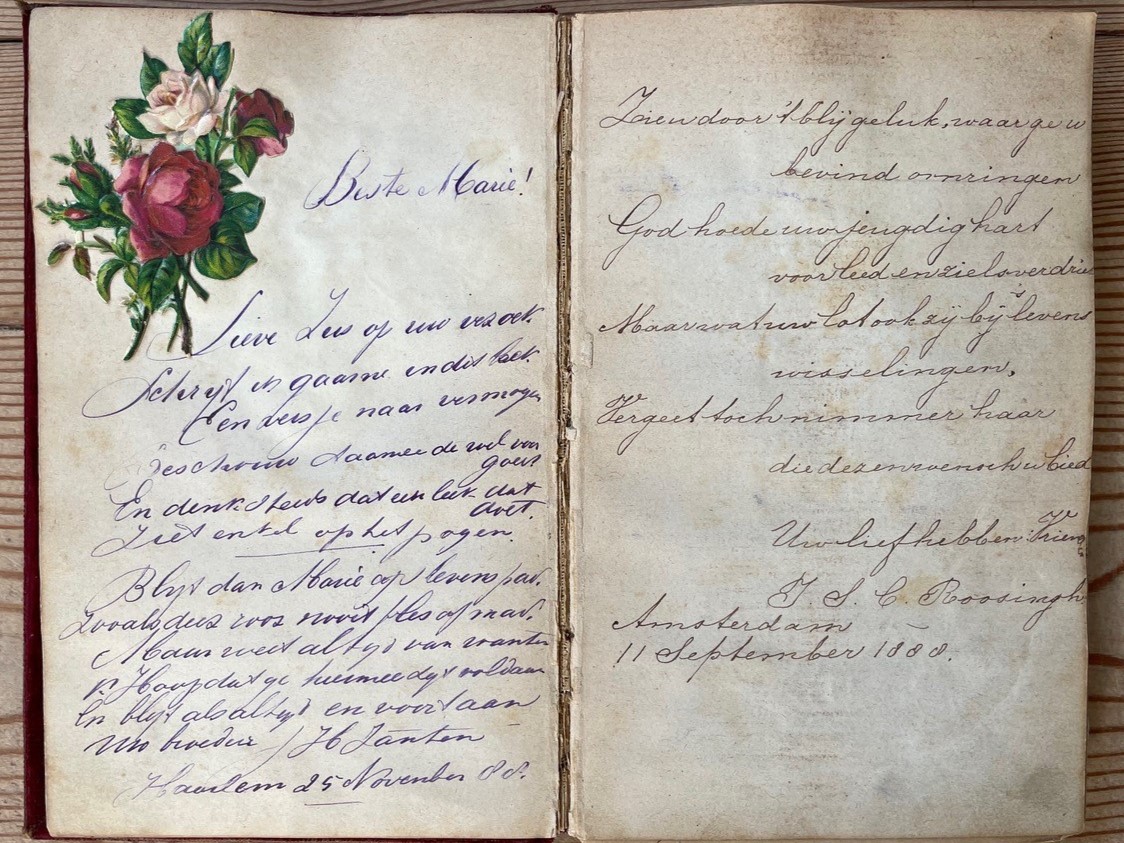 Beste Marie!
Lieve Zus op uw verzoek
Schrijf ik gaarne in dit boek
Een versje naar vermogen
Beschouw daarmee de wel voor
goed
En denk steeds dat een leek dat
doet.
Ziet enkel op het pogen.
Blijf dan Marie op levenspad.
Zooals deez roos nooit fles of mat.
Maar weet altijd van wanten
'k Hoop dat ge hiermee zijt voldaan
En blijf als altijd en voortaan
Uw broeder J H Janten
Haarlem 25 November 88.
Zien door 't blij geluk, waar ge u
bevind omringen
God hoede uw jeugdig hart
voor leed en zielsverdrie
Maar wat uw lot ook zij bij 's levens
wisselingen,
Vergeet toch nimmer haar
die dezen wensch u bied
Uw liefhebben: Vrien
J S. C. Roosingh
Amsterdam
11 September 1888.